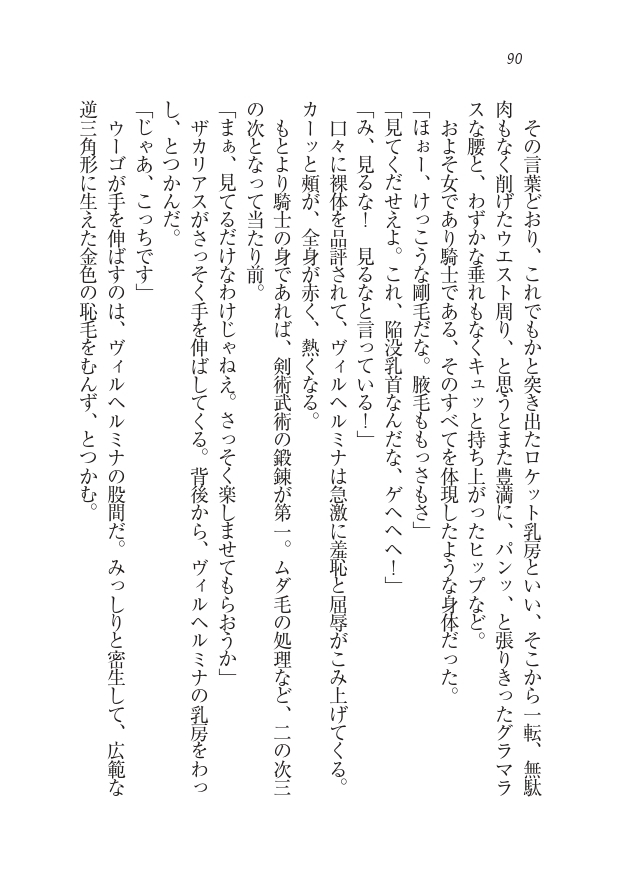 90
その言葉どおり、これでもかと突き出たロケット乳房といい、そこから一転、無駄
肉もなく削げたウエスト周り、と思うとまた豊満に、パンッ、と張りきったグラマラ
スな腰と、わずかな垂れもなくキュッと持ち上がったヒップなど。
およそ女であり騎士である、そのすべてを体現したような身体だった。
「ほぉー、けっこうな剛毛だな。腋毛ももっさもさ」
「見てくだせえよ。これ、陥没乳首なんだな、ゲヘヘヘ！」
「み、見るな！　見るなと言っている！」
口々に裸体を品評されて、ヴィルヘルミナは急激に羞恥と屈辱がこみ上げてくる。
カーッと頰が、全身が赤く、熱くなる。
もとより騎士の身であれば、剣術武術の鍛錬が第一。ムダ毛の処理など、二の次三
の次となって当たり前。
「まぁ、見てるだけなわけじゃねえ。さっそく楽しませてもらおうか」
ザカリアスがさっそく手を伸ばしてくる。背後から、ヴィルヘルミナの乳房をわっ
し、とつかんだ。
「じゃあ、こっちです」
ウーゴが手を伸ばすのは、ヴィルヘルミナの股間だ。みっしりと密生して、広範な
逆三角形に生えた金色の恥毛をむんず、とつかむ。